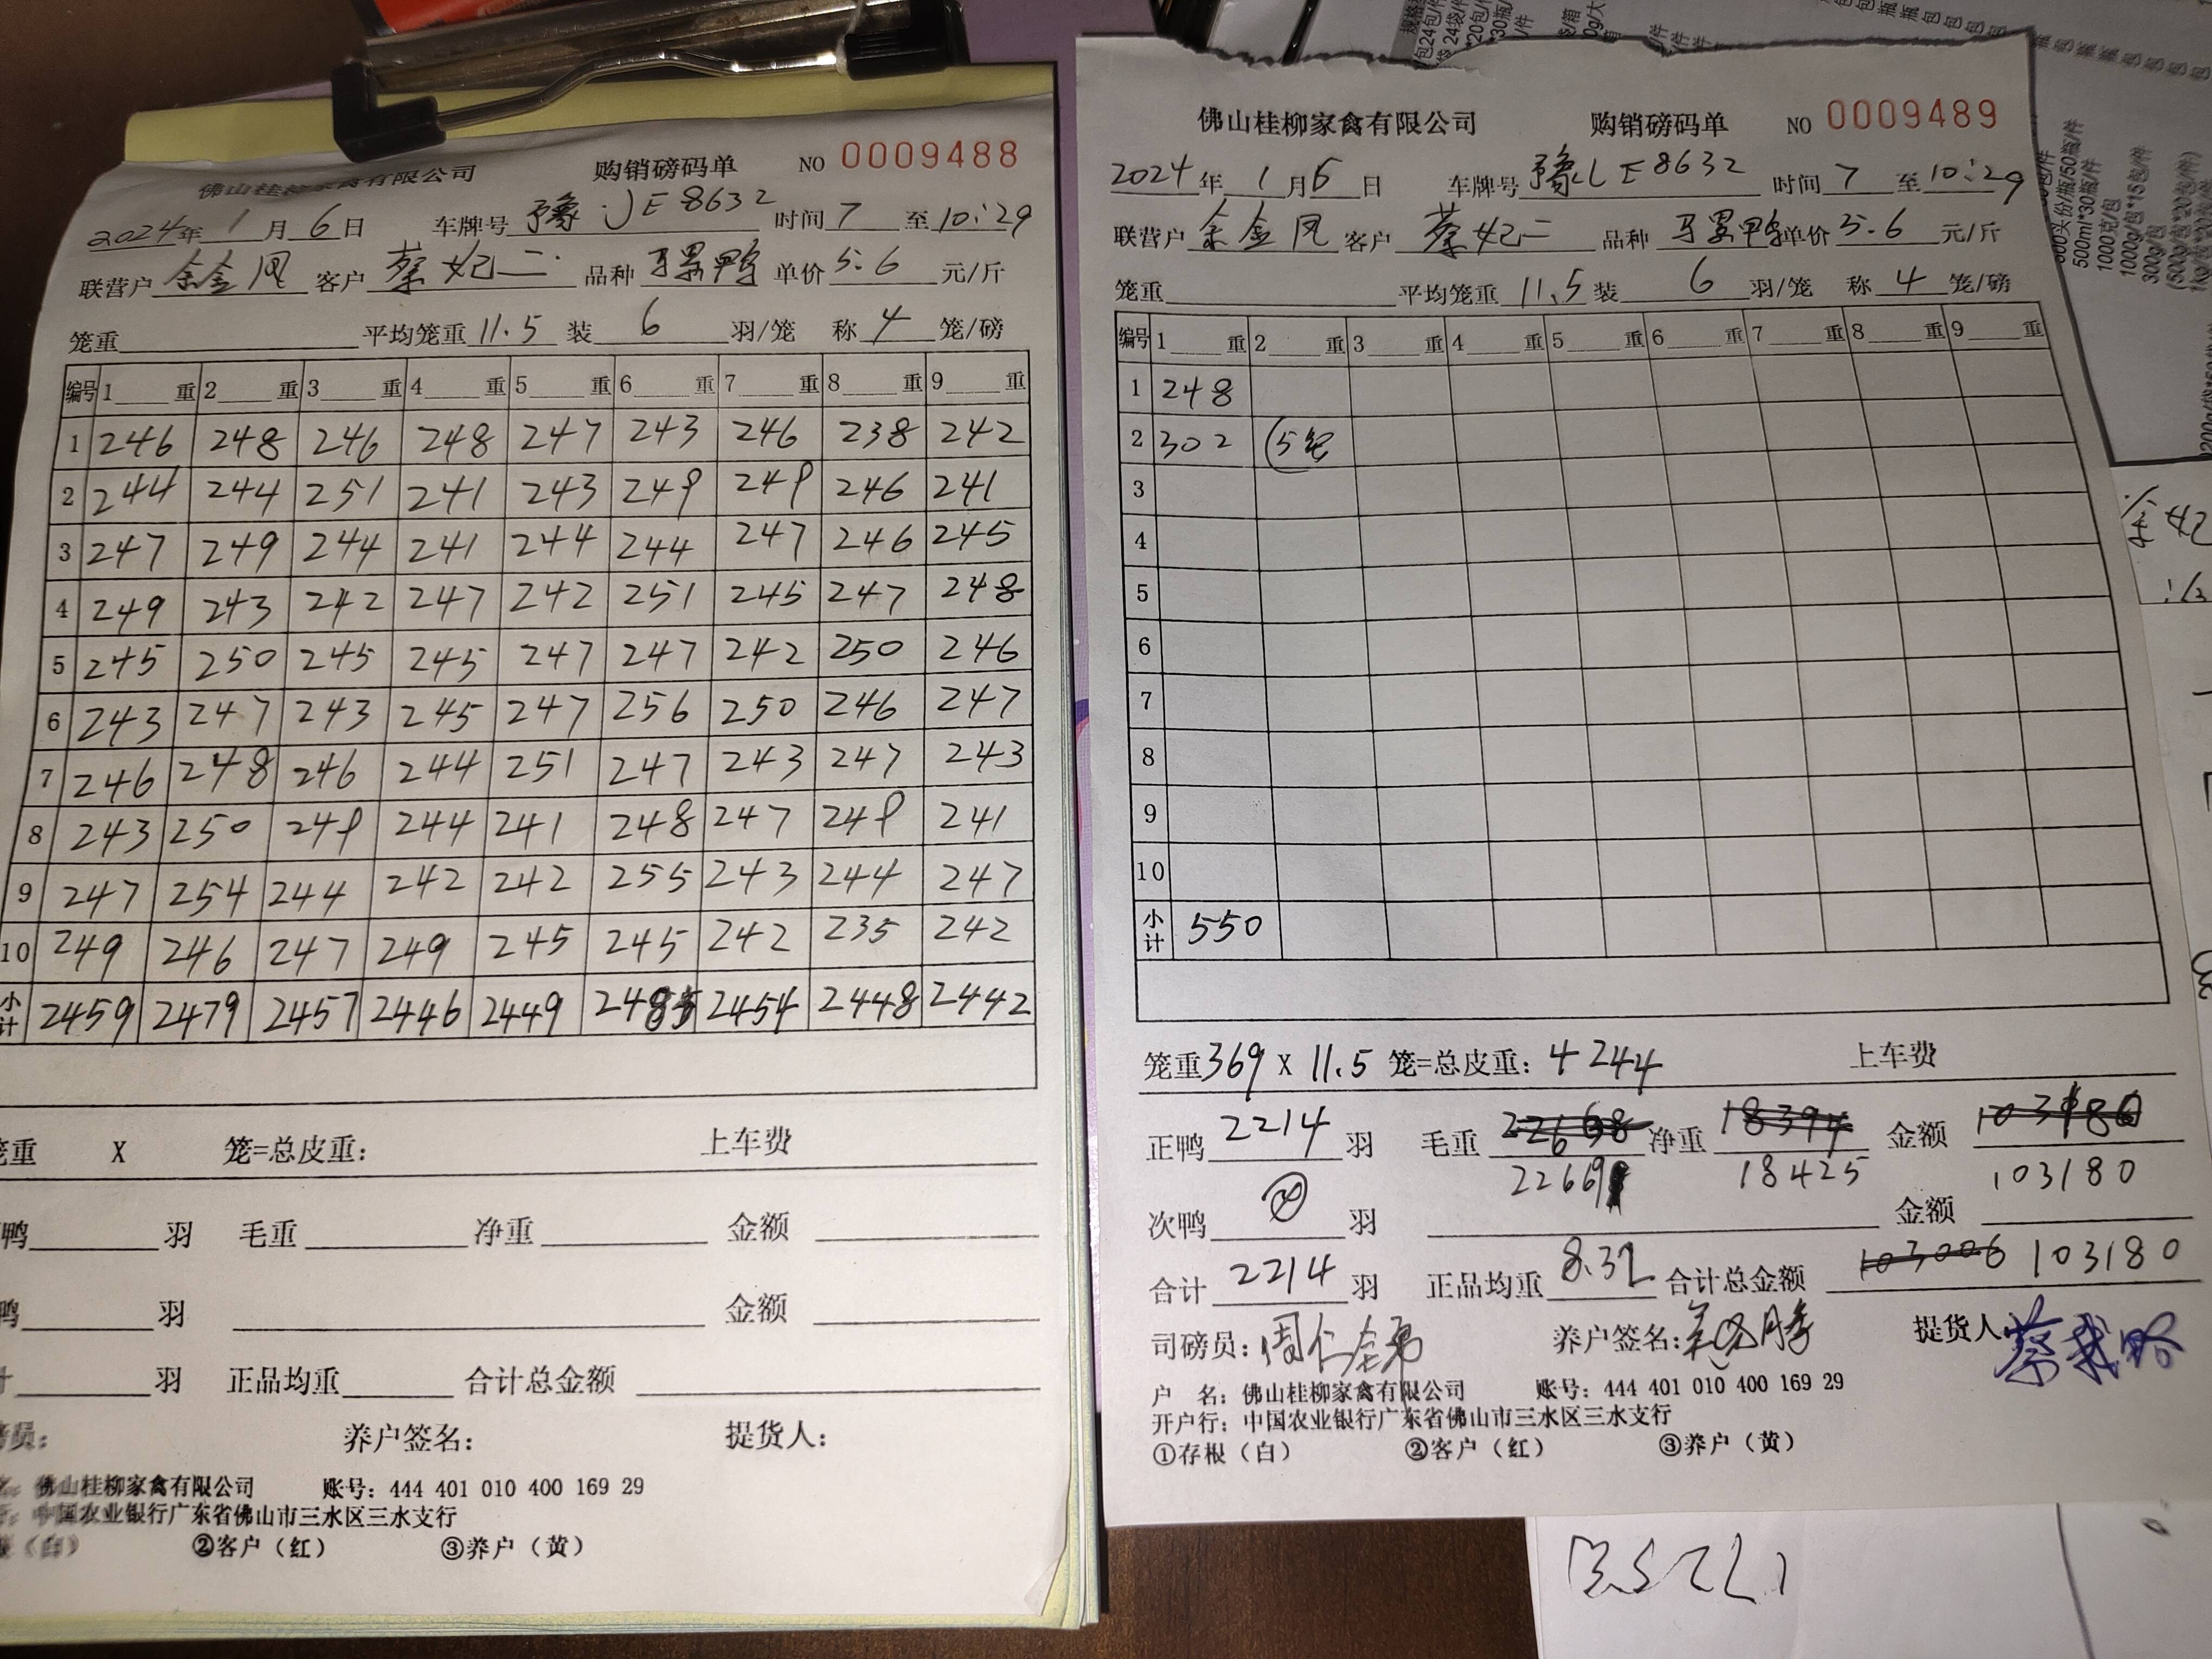 佛山桂柳家禽有限公司 购销磅码单 NO 0009488
2024年 1 月 6 日 车牌号 豫JE8632 时间 7 至 10:29
联营户 余金凤 客户 蔡妃二 品种 马累鸭 单价 5.6 元/斤
笼重 平均笼重 11.5 装 6 羽/笼 称 4 笼/磅
编号 1 重 2 重 3 重 4 重 5 重 6 重 7 重 8 重 9 重
1 246 248 246 248 247 243 246 238 242
2 244 244 251 241 243 249 249 246 241
3 247 249 244 241 244 244 247 246 245
4 249 243 242 247 242 251 245 247 248
5 245 250 245 245 247 247 242 250 246
6 243 247 243 245 247 256 250 246 247
7 246 248 246 244 251 247 243 247 243
8 243 250 249 244 241 248 247 249 241
9 247 254 244 242 242 255 243 244 247
10 249 246 247 249 245 245 242 235 242
小计 2459 2479 2457 2446 2449 2485 2454 2448 2442
笼重 X 笼=总皮重: 上车费
鸭 羽 毛重 净重 金额
鸭 羽 金额
计 羽 正品均重 合计总金额
员: 养户签名: 提货人:
名: 佛山桂柳家禽有限公司 账号: 444 401 010 400 169 29
行: 中国农业银行广东省佛山市三水区三水支行
(白) ②客户(红) ③养户(黄)
佛山桂柳家禽有限公司 购销磅码单 NO 0009489
2024 年 1 月 6 日 车牌号 豫JE8632 时间 7 至 10:29
联营户 余金凤 客户 蔡妃二 品种 马累鸭 单价 5.6 元/斤
笼重 平均笼重 11.5 装 6 羽/笼 称 4 笼/磅
编号 1 重 2 重 3 重 4 重 5 重 6 重 7 重 8 重 9 重
1 248
2 302 (5笼
3
4
5
6
7
8
9
10
小计 550
笼重 369 X 11.5 笼=总皮重: 4244 上车费
正鸭 2214 羽 毛重 22638 净重 18394 金额 103180
22669 18425 103180
次鸭 羽 金额
合计 2214 羽 正品均重 8.32 合计总金额 103006 103180
司磅员: 养户签名: 提货人:
户 名: 佛山桂柳家禽有限公司 账号: 444 401 010 400 169 29
开户行: 中国农业银行广东省佛山市三水区三水支行
①存根(白) ②客户(红) ③养户(黄)
500ml*30瓶/件
1000克/包
1000g/包*15包/件
300g/包